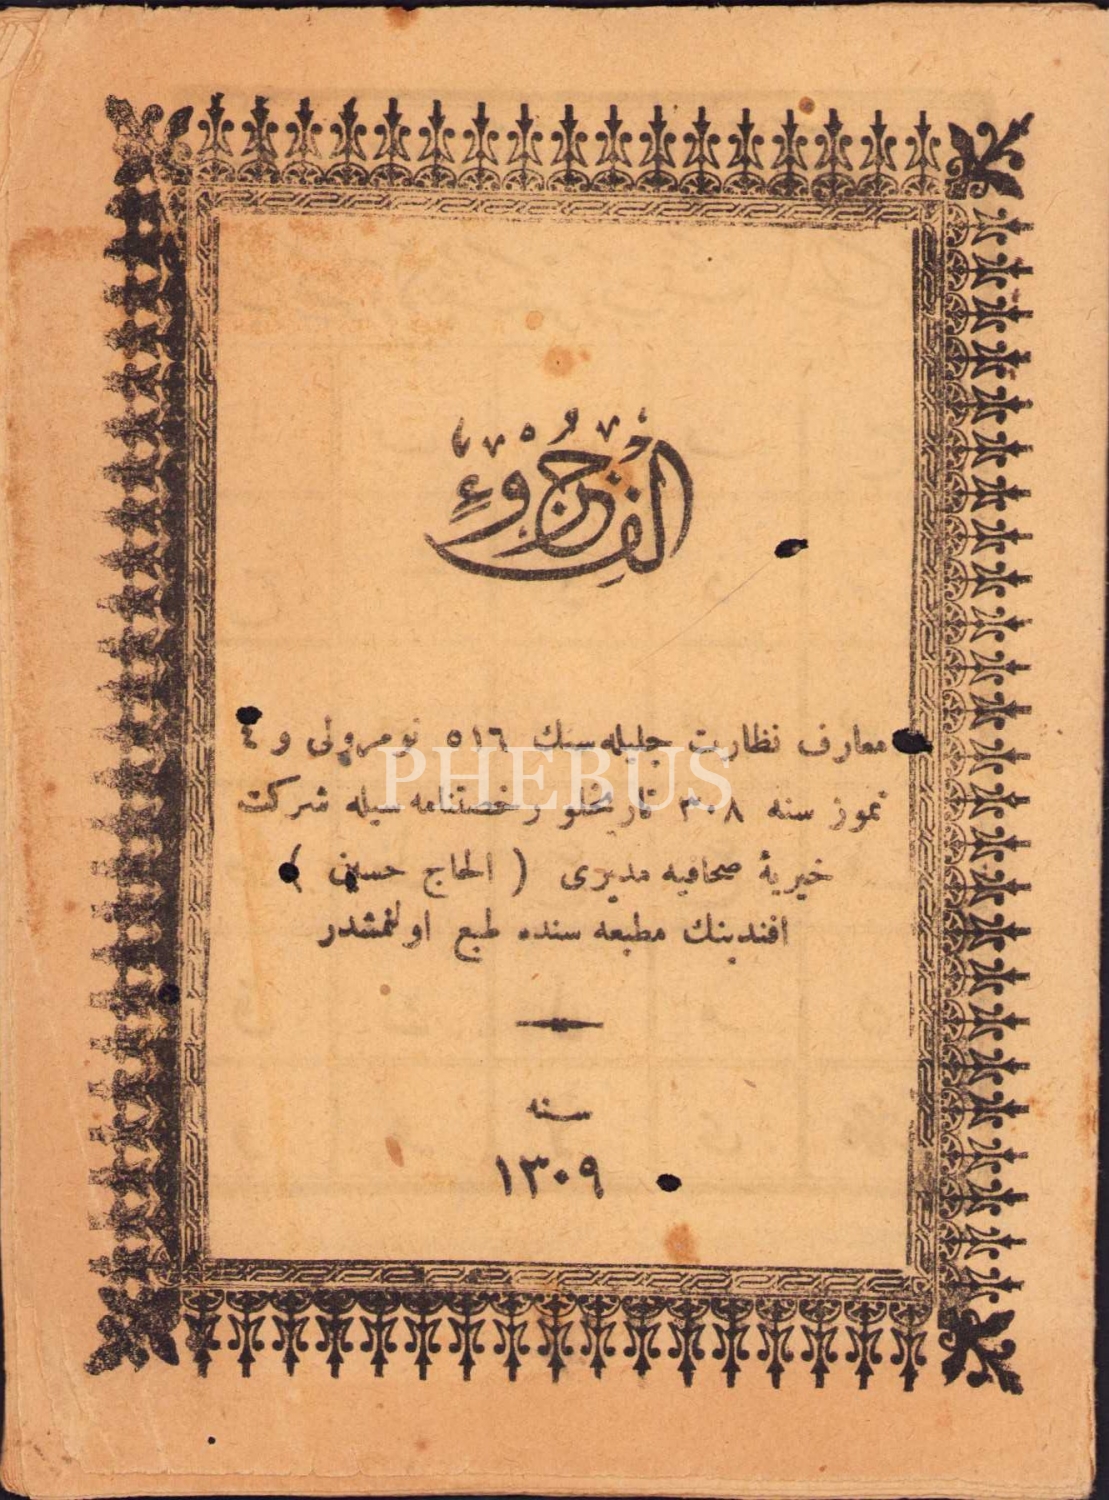 الفجزوء
معارف نظارت جليله سنك ٥١٦ نومرولى و ٤
تموز سنه ٣٠٨ تاريخلو رخصتنامه سيله شركت
خيريۀ صحافيه مديرى ( الحاج حسين )
افندينك مطبعه سنده طبع اولنمشدر
سنه
١٣٠٩
PHEBUS